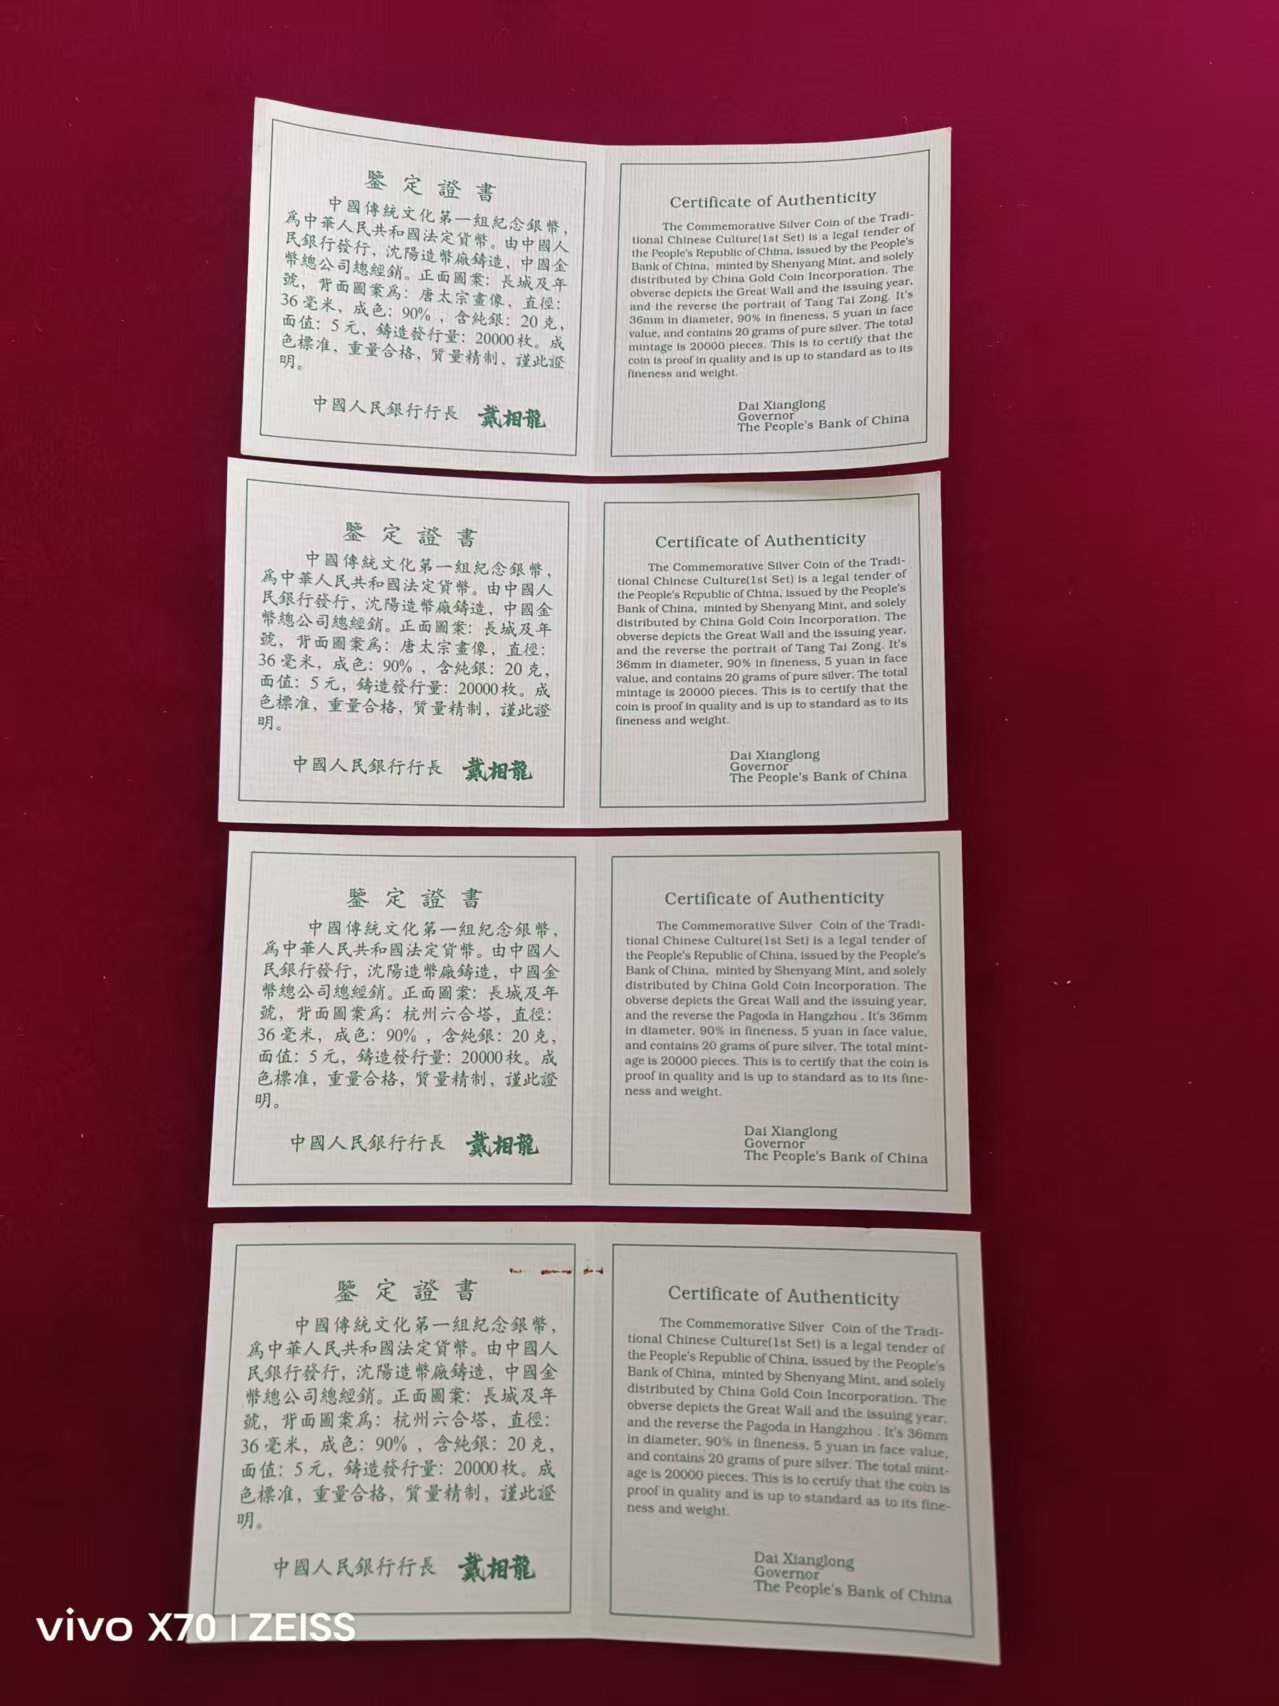 鑒定證書
中國傳統文化第一組紀念銀幣，
爲中華人民共和國法定貨幣。由中國人
民銀行發行，沈陽造幣廠鑄造，中國金
幣總公司總經銷。正面圖案：長城及年
號，背面圖案爲：唐太宗畫像，直徑：
36毫米，成色：90%，含純銀：20克，
面值：5元，鑄造發行量：20000枚。成
色標准，重量合格，質量精制，謹此證
明。
中國人民銀行行長 戴相龍
Certificate of Authenticity
The Commemorative Silver Coin of the Tradi-
tional Chinese Culture(1st Set) is a legal tender of
the People's Republic of China, issued by the People's
Bank of China, minted by Shenyang Mint, and solely
distributed by China Gold Coin Incorporation. The
obverse depicts the Great Wall and the issuing year,
and the reverse the portrait of Tang Tai Zong. It's
36mm in diameter, 90% in fineness, 5 yuan in face
value, and contains 20 grams of pure silver. The total
mintage is 20000 pieces. This is to certify that the
coin is proof in quality and is up to standard as to its
fineness and weight.
Dai Xianglong
Governor
The People's Bank of China
鑒定證書
中國傳統文化第一組紀念銀幣，
爲中華人民共和國法定貨幣。由中國人
民銀行發行，沈陽造幣廠鑄造，中國金
幣總公司總經銷。正面圖案：長城及年
號，背面圖案爲：唐太宗畫像，直徑：
36毫米，成色：90%，含純銀：20克，
面值：5元，鑄造發行量：20000枚。成
色標准，重量合格，質量精制，謹此證
明。
中國人民銀行行長 戴相龍
Certificate of Authenticity
The Commemorative Silver Coin of the Tradi-
tional Chinese Culture(1st Set) is a legal tender of
the People's Republic of China, issued by the People's
Bank of China, minted by Shenyang Mint, and solely
distributed by China Gold Coin Incorporation. The
obverse depicts the Great Wall and the issuing year,
and the reverse the portrait of Tang Tai Zong. It's
36mm in diameter, 90% in fineness, 5 yuan in face
value, and contains 20 grams of pure silver. The total
mintage is 20000 pieces. This is to certify that the
coin is proof in quality and is up to standard as to its
fineness and weight.
Dai Xianglong
Governor
The People's Bank of China
鑒定證書
中國傳統文化第一組紀念銀幣，
爲中華人民共和國法定貨幣。由中國人
民銀行發行，沈陽造幣廠鑄造，中國金
幣總公司總經銷。正面圖案：長城及年
號，背面圖案爲：杭州六合塔，直徑：
36毫米，成色：90%，含純銀：20克，
面值：5元，鑄造發行量：20000枚。成
色標准，重量合格，質量精制，謹此證
明。
中國人民銀行行長 戴相龍
Certificate of Authenticity
The Commemorative Silver Coin of the Tradi-
tional Chinese Culture(1st Set) is a legal tender of
the People's Republic of China, issued by the People's
Bank of China, minted by Shenyang Mint, and solely
distributed by China Gold Coin Incorporation. The
obverse depicts the Great Wall and the issuing year,
and the reverse the Pagoda in Hangzhou . It's 36mm
in diameter, 90% in fineness, 5 yuan in face value,
and contains 20 grams of pure silver. The total mint-
age is 20000 pieces. This is to certify that the coin is
proof in quality and is up to standard as to its fine-
ness and weight.
Dai Xianglong
Governor
The People's Bank of China
鑒定證書
中國傳統文化第一組紀念銀幣，
爲中華人民共和國法定貨幣。由中國人
民銀行發行，沈陽造幣廠鑄造，中國金
幣總公司總經銷。正面圖案：長城及年
號，背面圖案爲：杭州六合塔，直徑：
36毫米，成色：90%，含純銀：20克，
面值：5元，鑄造發行量：20000枚。成
色標准，重量合格，質量精制，謹此證
明。
中國人民銀行行長 戴相龍
Certificate of Authenticity
The Commemorative Silver Coin of the Tradi-
tional Chinese Culture(1st Set) is a legal tender of
the People's Republic of China, issued by the People's
Bank of China, minted by Shenyang Mint, and solely
distributed by China Gold Coin Incorporation. The
obverse depicts the Great Wall and the issuing year,
and the reverse the Pagoda in Hangzhou . It's 36mm
in diameter, 90% in fineness, 5 yuan in face value,
and contains 20 grams of pure silver. The total mint-
age is 20000 pieces. This is to certify that the coin is
proof in quality and is up to standard as to its fine-
ness and weight.
Dai Xianglong
Governor
The People's Bank of China
vivo X70 | ZEISS